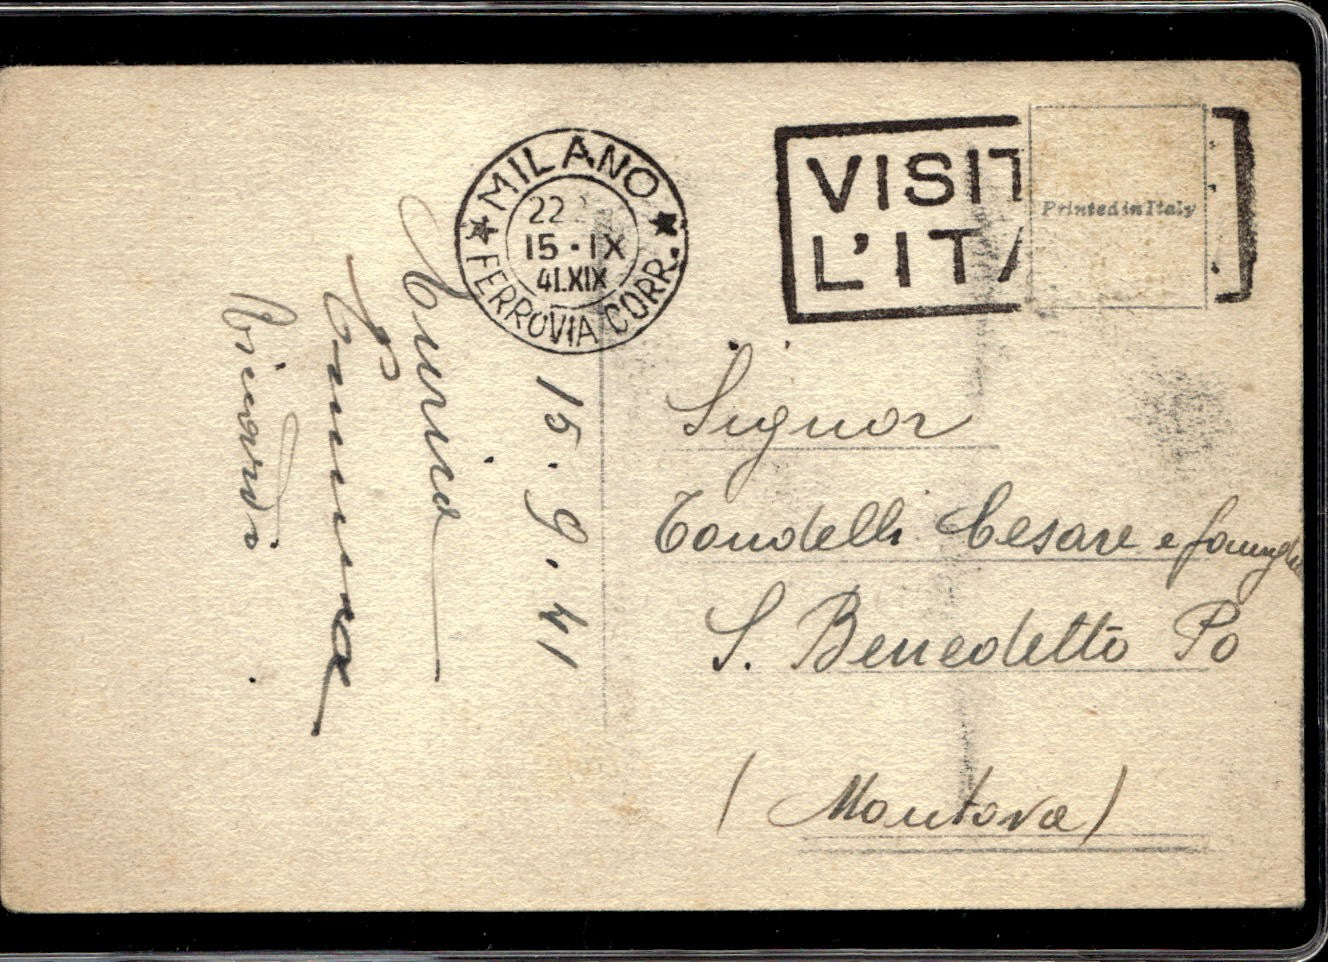 MILANO
22
15-IX
41.XIX
FERROVIA CORR.
VISIT
L'ITA
Printed in Italy
15.9.41
Ricordi
Signor
Tondelli Cesare e famiglia
S. Benedetto Po
(Mantova)